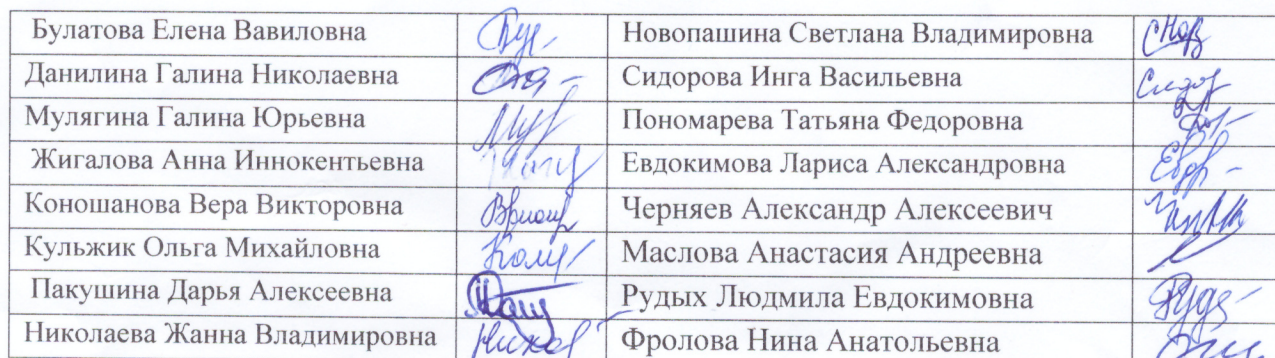 Булатова Елена Вавиловна Новопашина Светлана Владимировна
Данилина Галина Николаевна Сидорова Инга Васильевна
Мулягина Галина Юрьевна Пономарева Татьяна Федоровна
Жигалова Анна Иннокентьевна Евдокимова Лариса Александровна
Коношанова Вера Викторовна Черняев Александр Алексеевич
Кульжик Ольга Михайловна Маслова Анастасия Андреевна
Пакушина Дарья Алексеевна Рудых Людмила Евдокимовна
Николаева Жанна Владимировна Фролова Нина Анатольевна